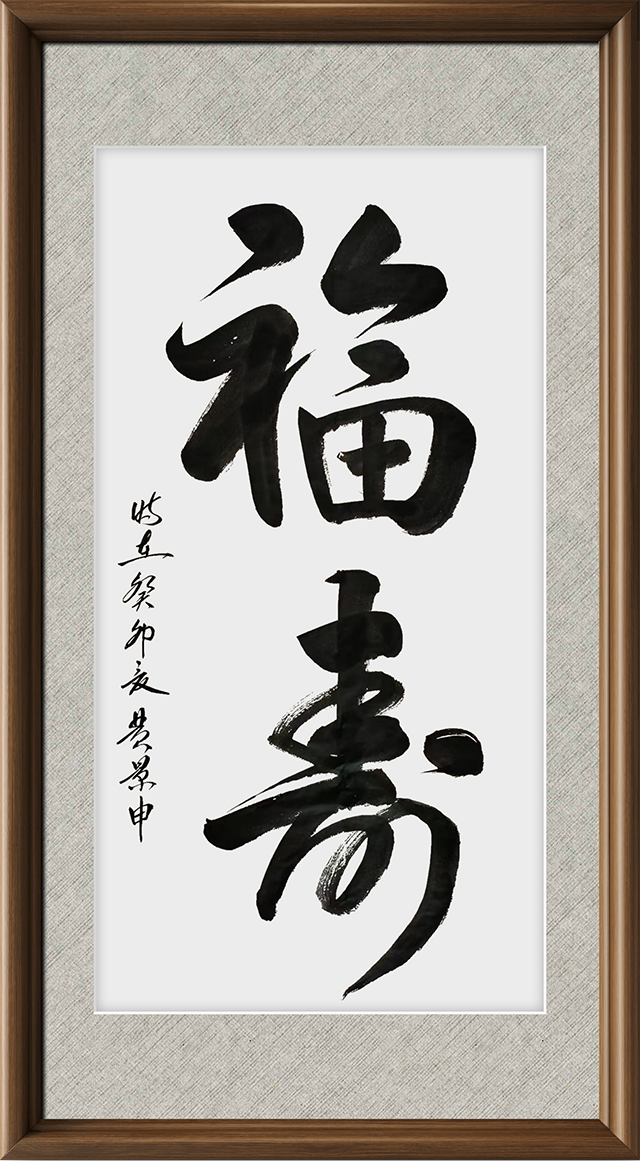 福寿
时在癸卯夏黄景申